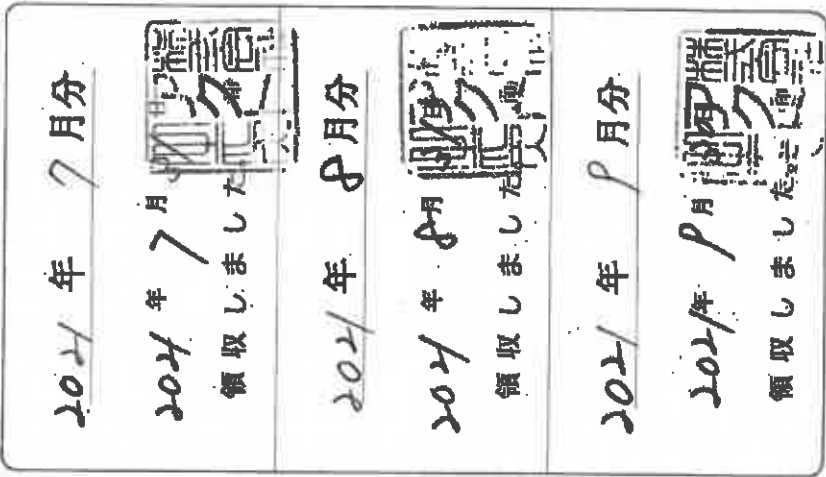 2021年 7月分
2021年 7月 日
領収しました
2021年 8月分
2021年 8月
領収しました
2021年 9月分
2021年 9月
領収しました